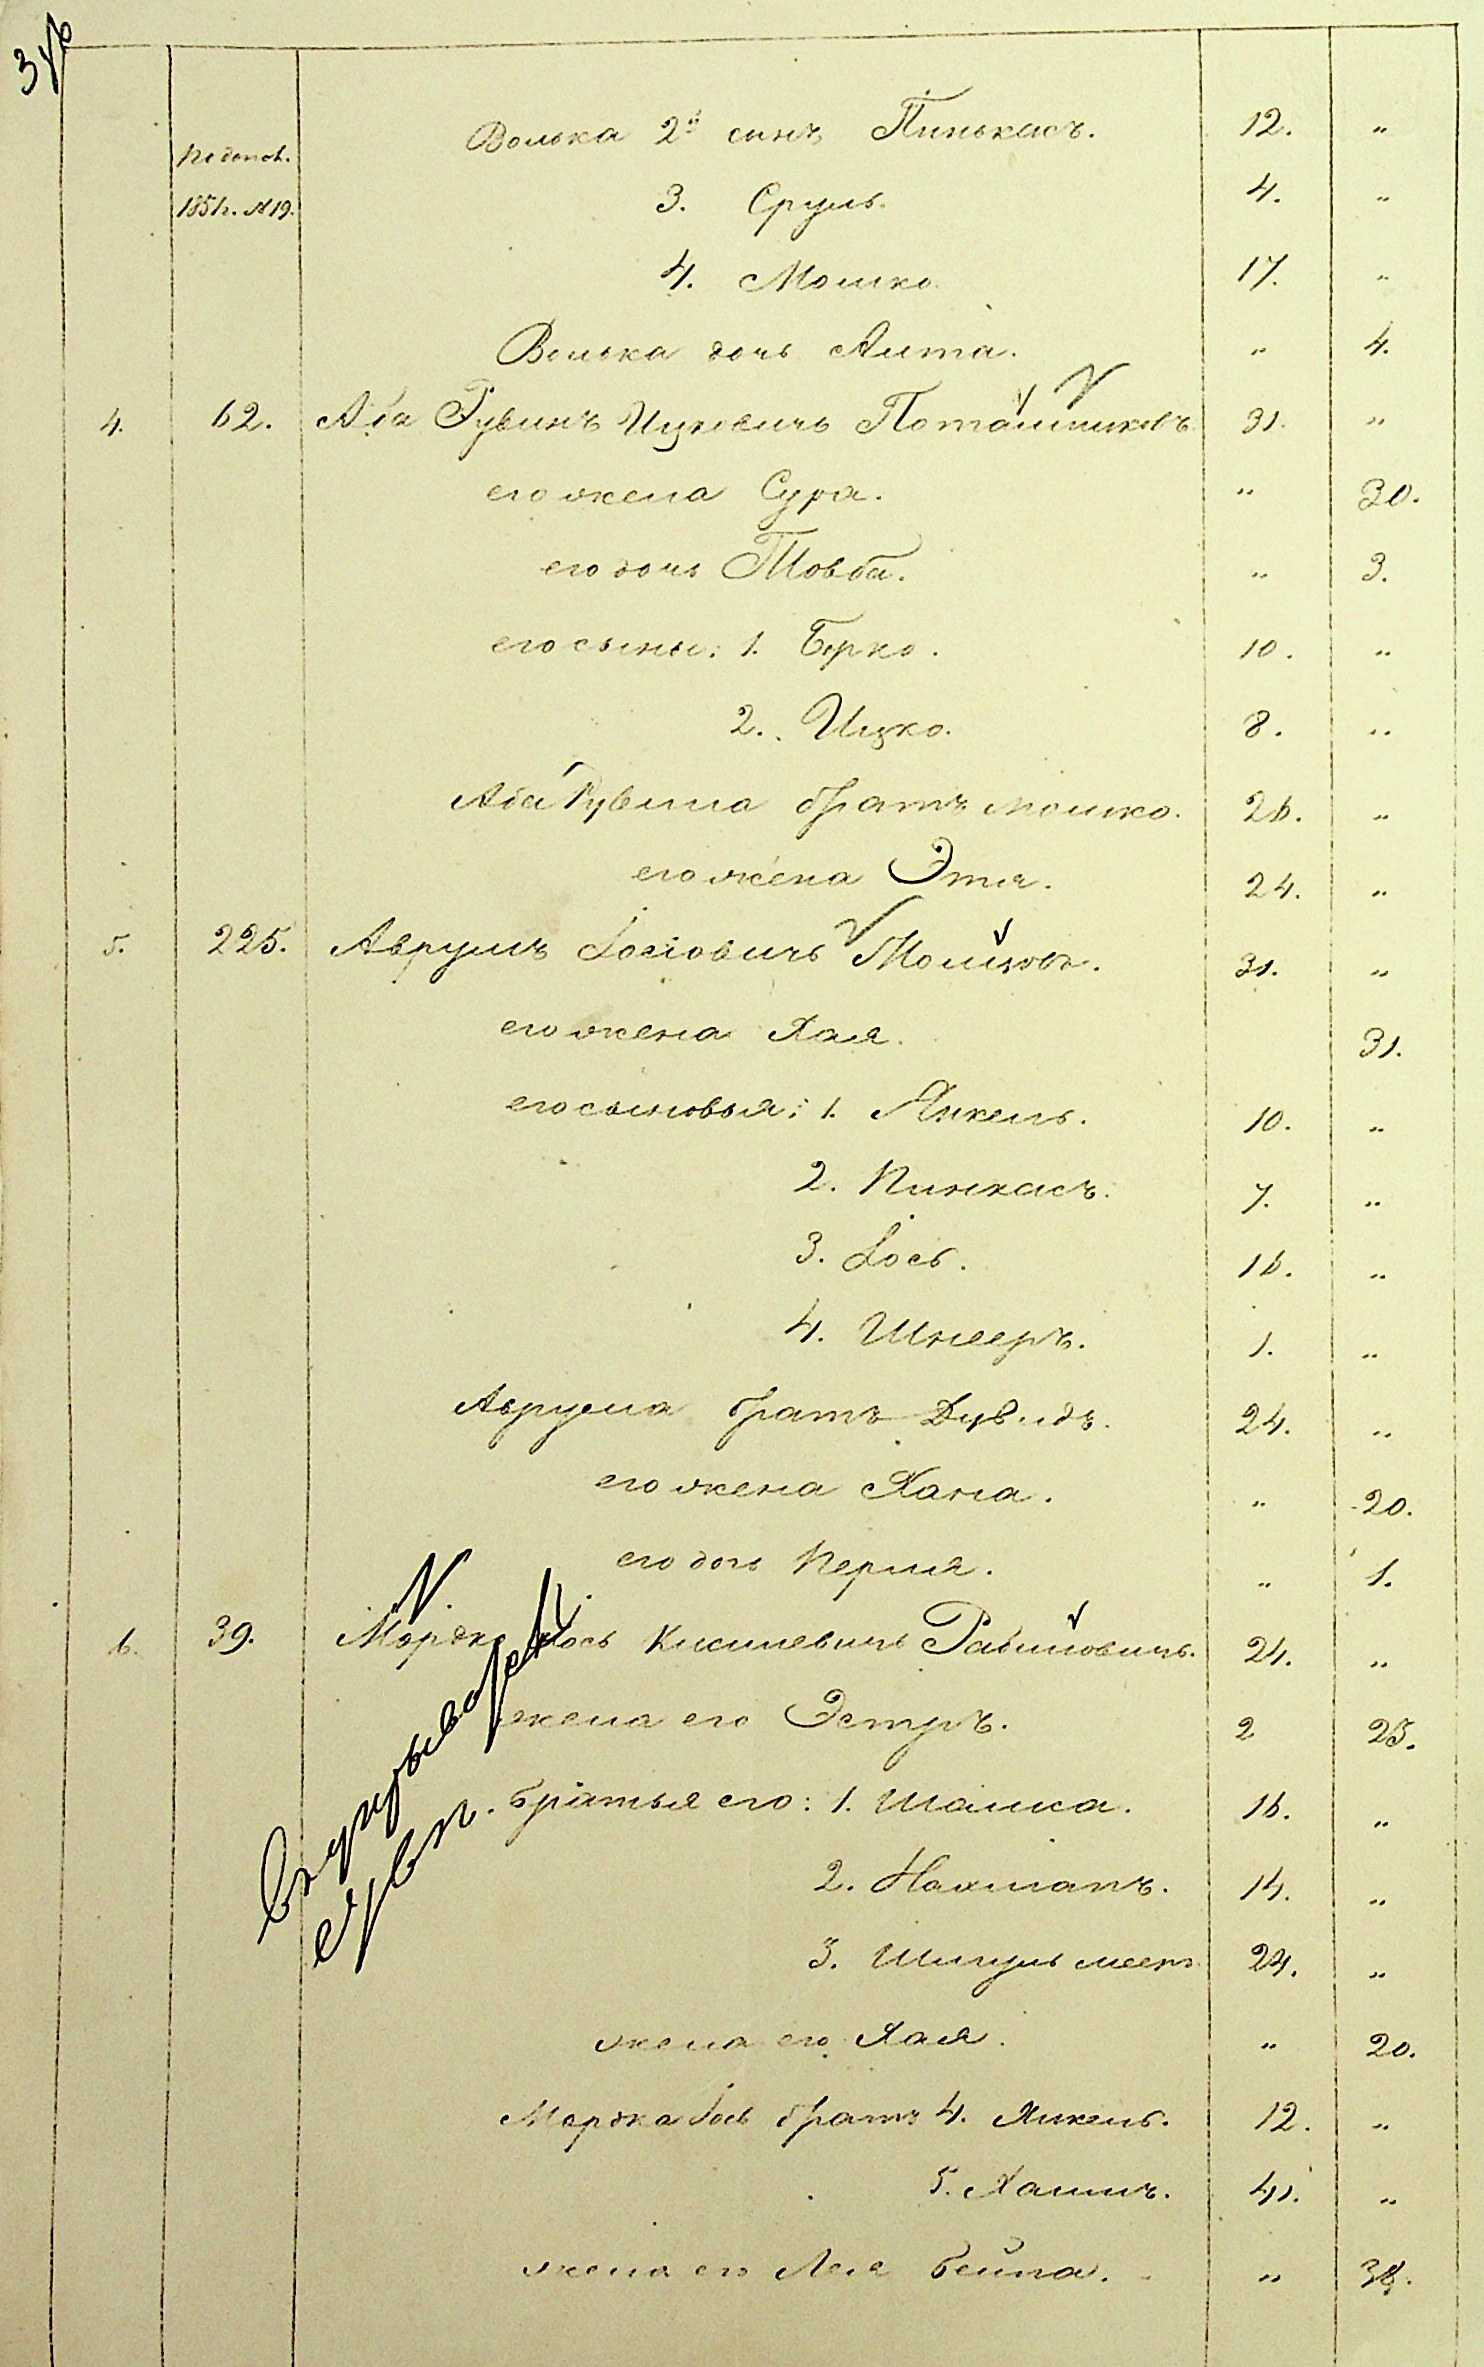 Волька 2й сынъ Пинькасъ. 12. "
По допол. 1851 г. №19.
3. Сруль. 4. "
4. Мошко 17. "
Волька дочь Алта. " 4.
4. 62. Аба Рувинъ Ицковичъ Поташниковъ 31. "
его жена Сура. " 30.
его дочь Товба. " 3.
его сыны: 1. Берко. 10. "
2. Ицко. 8. "
Аба Рувина братъ Мошко. 26. "
его жена Этя. 24. "
5. 225. Аврумъ Іосіовичъ 31. "
его жена Хая. 31.
его сыновья: 1. Янкель. 10. "
2. Пинкасъ. 7. "
3. Іось. 16. "
4. Шнееръ. 1. "
Аврума братъ Дувидъ. 24. "
его жена Хана. " 20.
его дочь Перля. " 1.
6. 39. Мордко Іось Киселевичъ Рабиновичъ. 24. "
жена его Эстръ. 2 25.
братья его: 1. Шамка. 16. "
2. Нахманъ. 14. "
3. Шмуль 24. "
жена его Хая. " 20.
Мордка Іось братъ 4. Янкель. 12. "
5. Хаимъ. 41. "
жена его Лея Бейла. " 38.